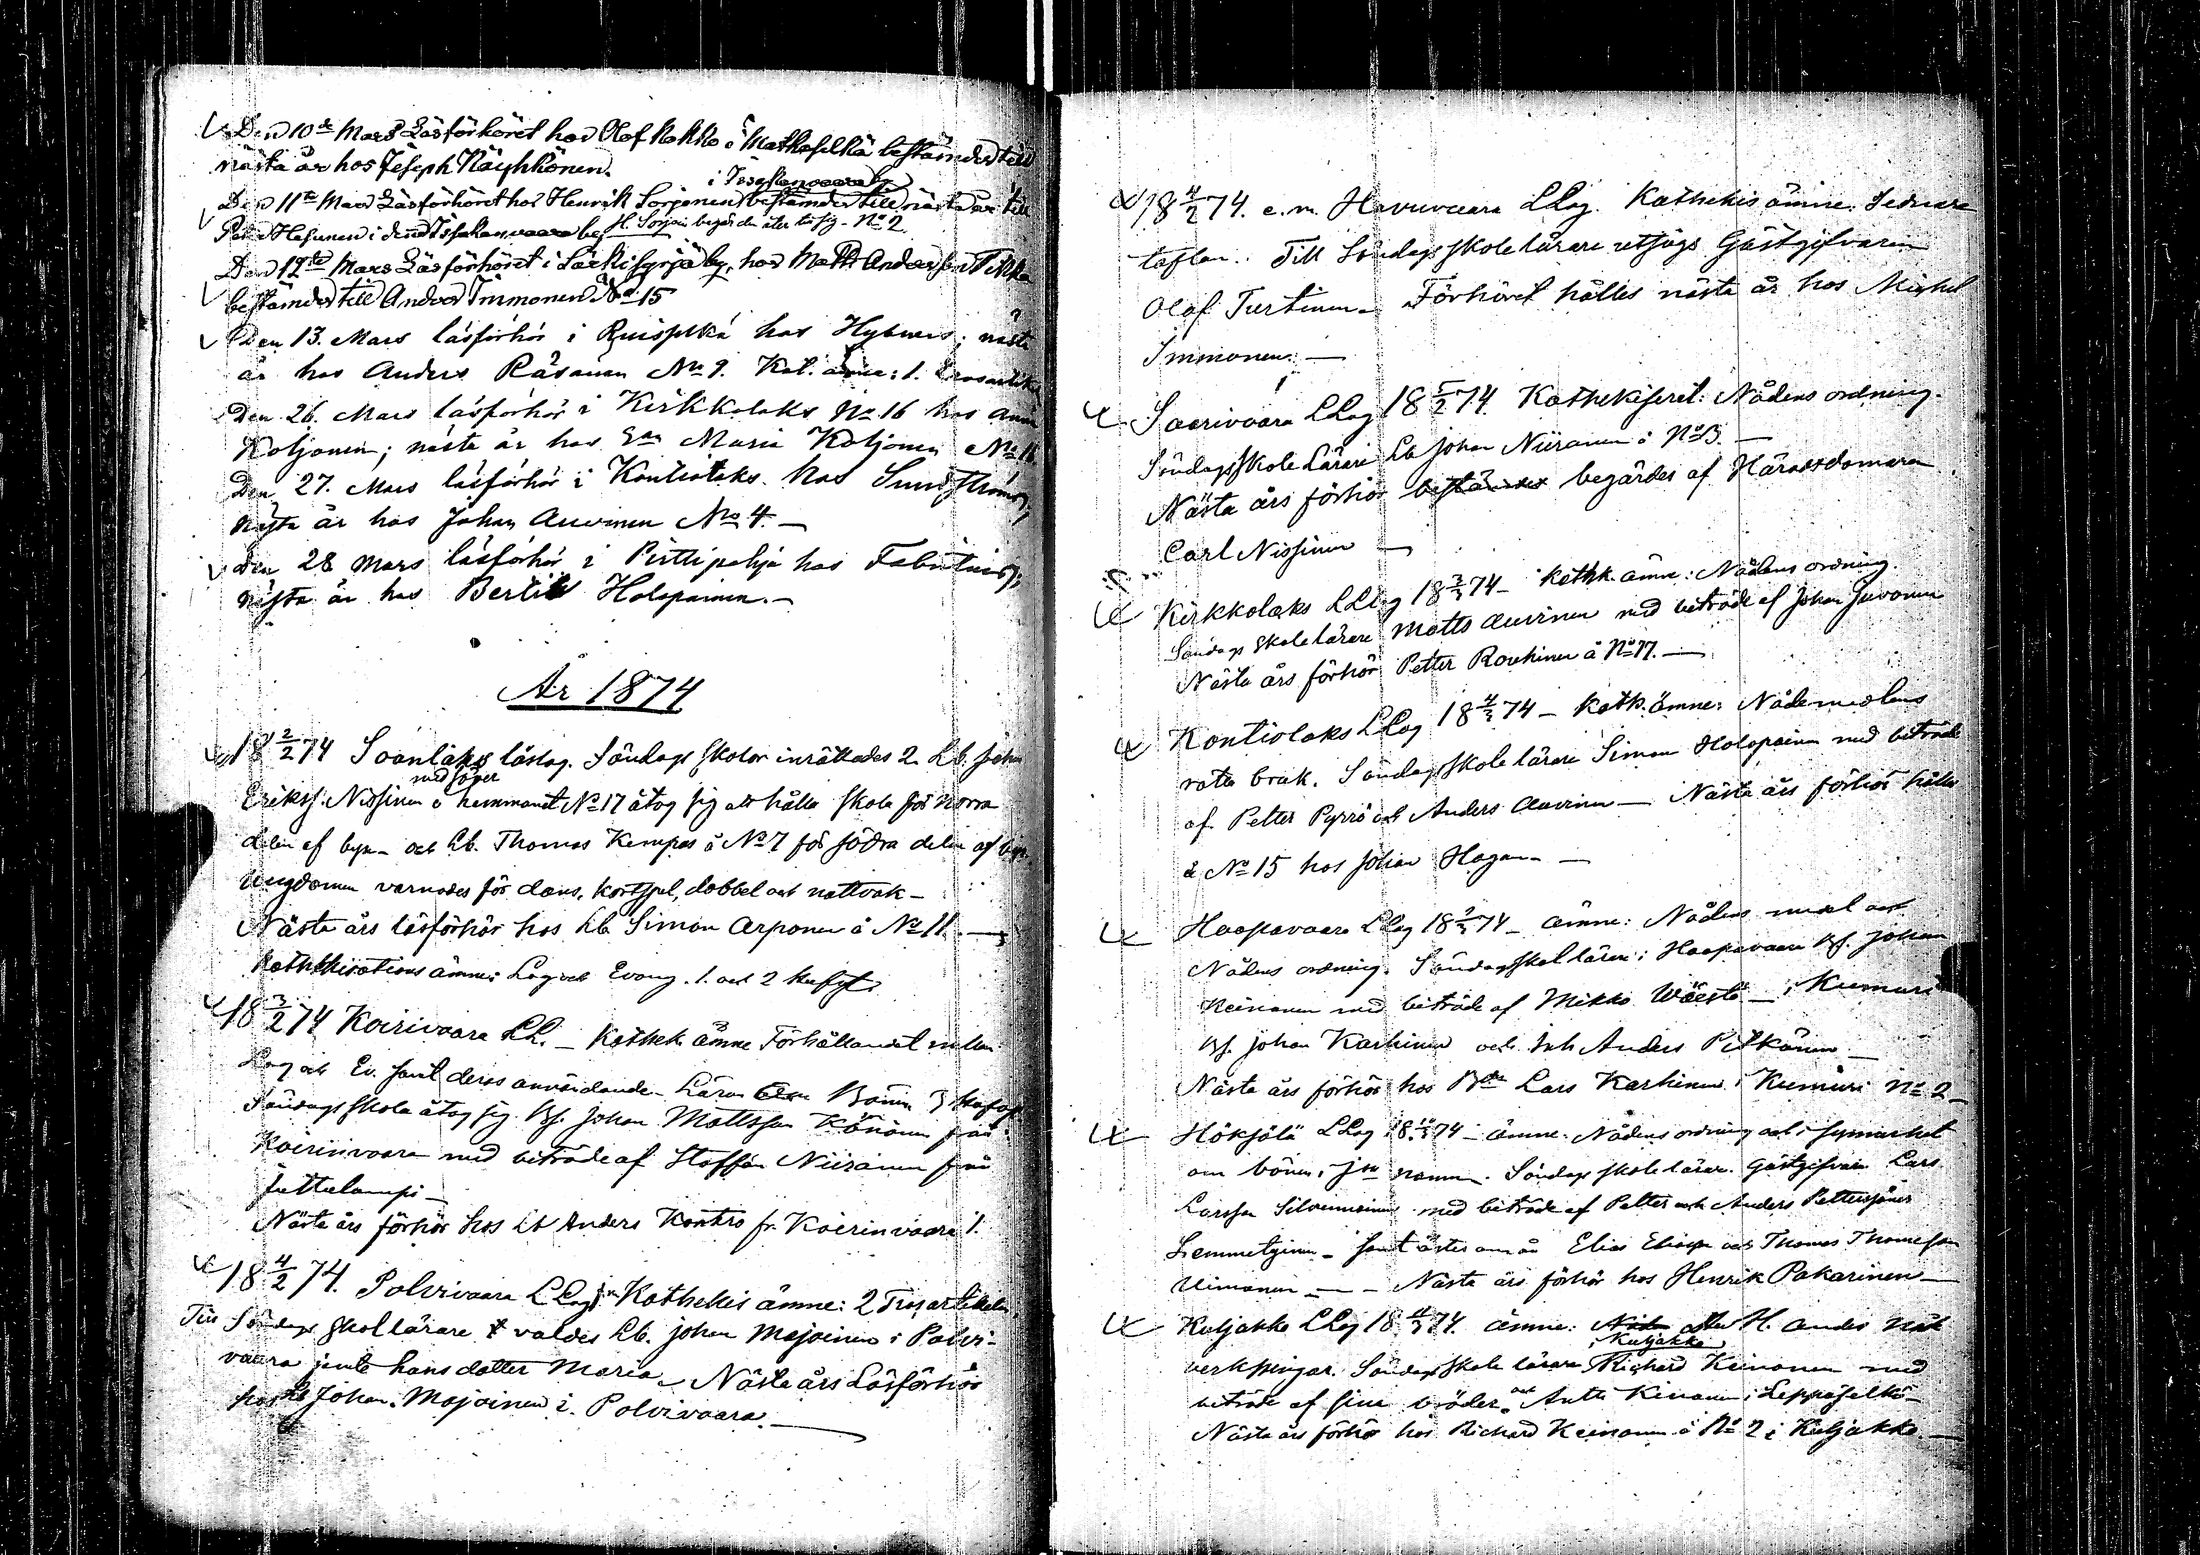 Den 10de Mars Läsförhöret hos Olof Kokko i Matkaselkä bestämdes till
nästa år hos Joseph Näyhkönen.
Den 11te Mars Läsförhöret hos Henrik Sorjonen bestämdes till nästa år till
i Issakanvaara by
Petter Hassunen i Issakanvaara by H. Sorjon. begär den åter till sig - No 2
Den 12te Mars Läsförhöret i Särkisyrjä by, hos Matts Andersson Tikka
bestämdes till Anders Immonen No 15
Den 13. Mars läsförhör i Ruispelkä hos Hybners; nästa
år hos Anders Räsänen No 9. Kat. ämne: 1. trosartikeln
Den 26. Mars läsförhör i Kirkkolaks No 16 hos Anna
Koljonen; nästa år hos Eva Maria Koljonen No 16
Den 27. Mars läsförhör i Kontiolaks hos Sundströms;
nästa år hos Johan Auvinen No 4. —
Den 28 Mars läsförhör i Pirttipohja hos Fabritius;
nästa år hos Bertil Holopainen. —
År 1874
18 2/2 74 Soanlaks läslag. Söndags skolor inrättades 2. Lb. Johan
med söner
Erikss. Nissinen å hemmanet No 17 åtog sig att hålla skola för norra
delen af byn — och Lb. Thomas Kempas å No 7 för södra delen af byn.
Ungdomen varnades för dans, kortspel, dobbel och nattvak —
Nästa års läsförhör hos Lb Simon Arponen å No 11. —
Kathekisations ämne: Lag och Evang. 1. och 2 hufvst.
18 3/2 74 Koirivaara LL. — Kathek. ämne Förhållandet mellan
Lag och Ev. samt deras användande — Läran om Bönen 3 hufvst
Söndags skola åtog sig Bs. Johan Mattsson Könönen från
Koirinvaara med biträde af Staffan Niiranen från
Juttulampi —
Nästa års förhör hos Lb Anders Kontro fr. Koirinvaara 1.
18 4/2 74. Polvivaara LLag fm Kathekis ämne: 2 Trosartikeln.
Till Söndags skollärare valdes Lb. Johan Majoinen i Polvi-
vaara jemte hans dotter Maria — Nästa års Läsförhör
hos Lb Johan Majoinen i Polvivaara. —
18 4/2 74. e.m. Havuvaara LLag. Kathekis ämne. Sednare
taflan. Till Söndagsskole lärare utsågs Gästgifvaren
Olof Turtinen — Förhöret hålles nästa år hos Michel
Immonen. —
Saarivaara LLag 18 5/2 74. Kathekiserat: Nådens ordning.
Söndagsskole Lärare Lb Johan Niiranen å No 3. —
Nästa års förhör bestämdes begärdes af Häradsdomaren
Carl Nissinen —
Kirkkolaks LLag 18 3/3 74 — Kathk. ämne: Nådens ordning.
Söndags skolelärare Matts Auvinen med biträde af Johan Juvonen
Nästa års förhör Petter Rouhinen å No 17. —
Kontiolaks LLag 18 4/3 74 — Kath. ämne: Nådemedlens
rätta bruk. Söndagsskole lärare Simon Holopainen med biträde
af Petter Pyrrö och Anders Auvinen — Nästa års förhör hålles
å No 15 hos Johan Hagan. —
Haapavaara LLag 18 9/3 74 — ämne: Nådens medel och
Nådens ordning. Söndagsskol lärare i Haapavaara Bs. Johan
Keinonen med biträde af Mikko Wäestö — i Kumuri
Bs. Johan Karhinen och Inh Anders Pitkänen —
Nästa års förhör hos Bdn Lars Karhinen i Kumuri No 2 —
Hökjölä LLag 18 10/3 74 — ämne. Nådens ordning och i synnerhet
om bönen i Jsu namn. Söndags skole lärar. Gästgifvare Lars
Larsson Silvennoinen med biträde af Petter och Anders Petterssöner
Lemmetyinen — samt Elias Eliass. och Thomas Thomesson
Uimonen — — Nästa års förhör hos Henrik Pakarinen —
Kuljakko LLag 18 11/3 74. ämne: den H. andes nåd
i Kuljakko
verkningar. Söndagsskole lärare Richard Keinonen med
biträde af sina bröder och Antti Kinanen i Leppäselkä —
Nästa års förhör hos Richard Keinonen å No 2 i Kuljakko. —